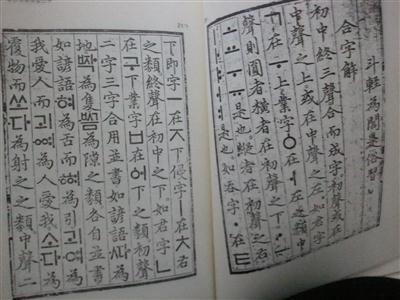 斗輕為閭是俗習
合字解
初中終三聲合而成字。初聲或在
中聲之上。或在中聲之左。如君字
ㄱ在ㅜ上。業字ㆁ在ㅓ左之類。中
聲則圓者橫者在初聲之下。ㆍㅡ
ㅗㅛㅜㅠ是也。縱者在初聲之右。
ㅣㅏㅑㅓㅕ是也。如吞字ㆍ在ㅌ
下。即字ㅡ在ㅈ下。侵字ㅣ在ㅊ右
之類。終聲在初中之下。如君字ㄴ
在구下。業字ㅂ在ᅌᅥ下之類。初聲
二字三字合用並書。如諺語ᄯᅡ為
地。ᄧᅡᆨ為隻。ᄢᅳᆷ為隙之類。各自並書。
如諺語혀為舌而ᅘᅧ為引。괴여為
我愛人而괴ᅇᅧ為人愛我。소다為
覆物而쏘다為射之之類。中聲二